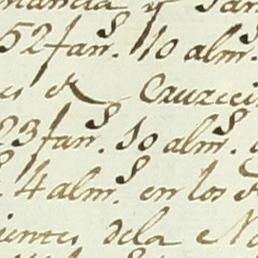 mancia y San
52 fan.s 10 alm.s
es el Cruzeci
23 fan.s 10 alm.s
4 alm.s en los
ientes dela No